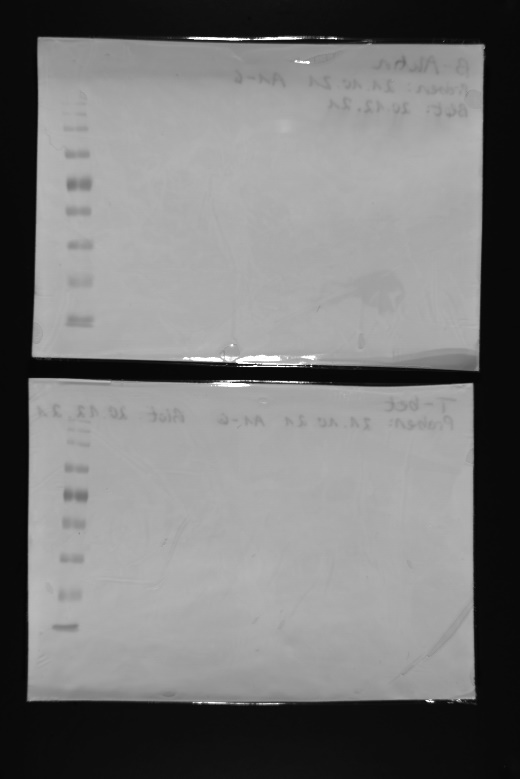 β-Aktin
Proben: 21.10.21 A1-6
Blot: 20.12.21
T-bet
Proben: 21.10.21 A1-6 Blot 20.12.21